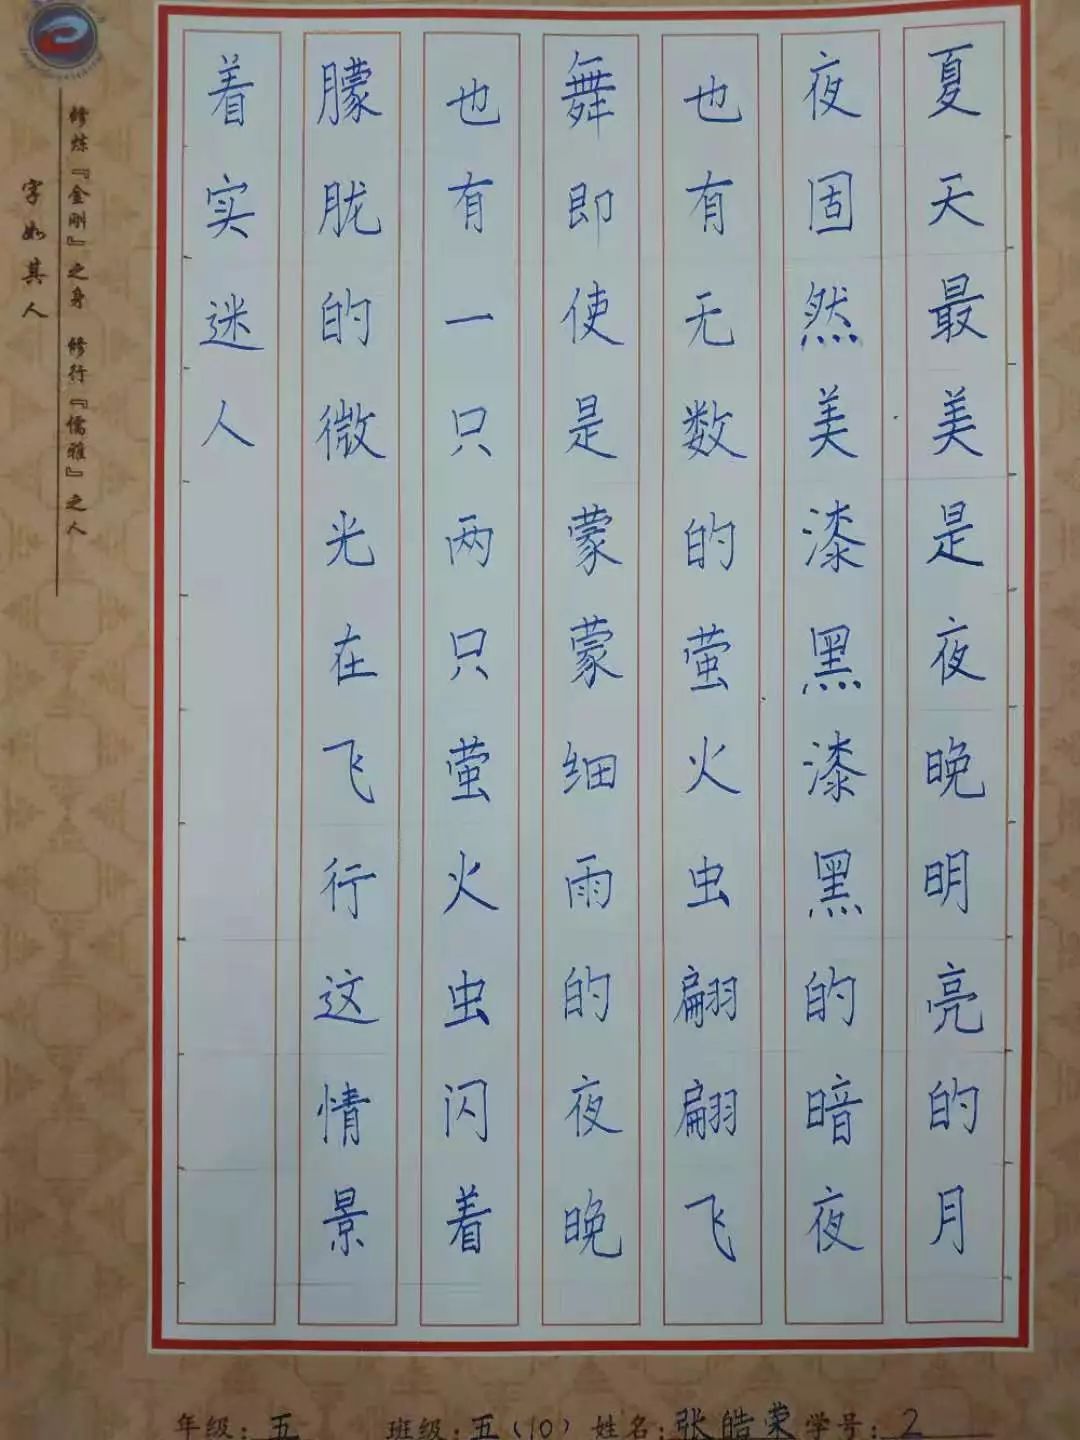 夏天最美是夜晚明亮的月
夜固然美漆黑漆黑的暗夜
也有无数的萤火虫翩翩飞
舞即使是蒙蒙细雨的夜晚
也有一只两只萤火虫闪着
朦胧的微光在飞行这情景
着实迷人
修炼『金刚』之身 修行『儒雅』之人
字如其人
年级:五 班级:五(10) 姓名:张皓荣 学号:2